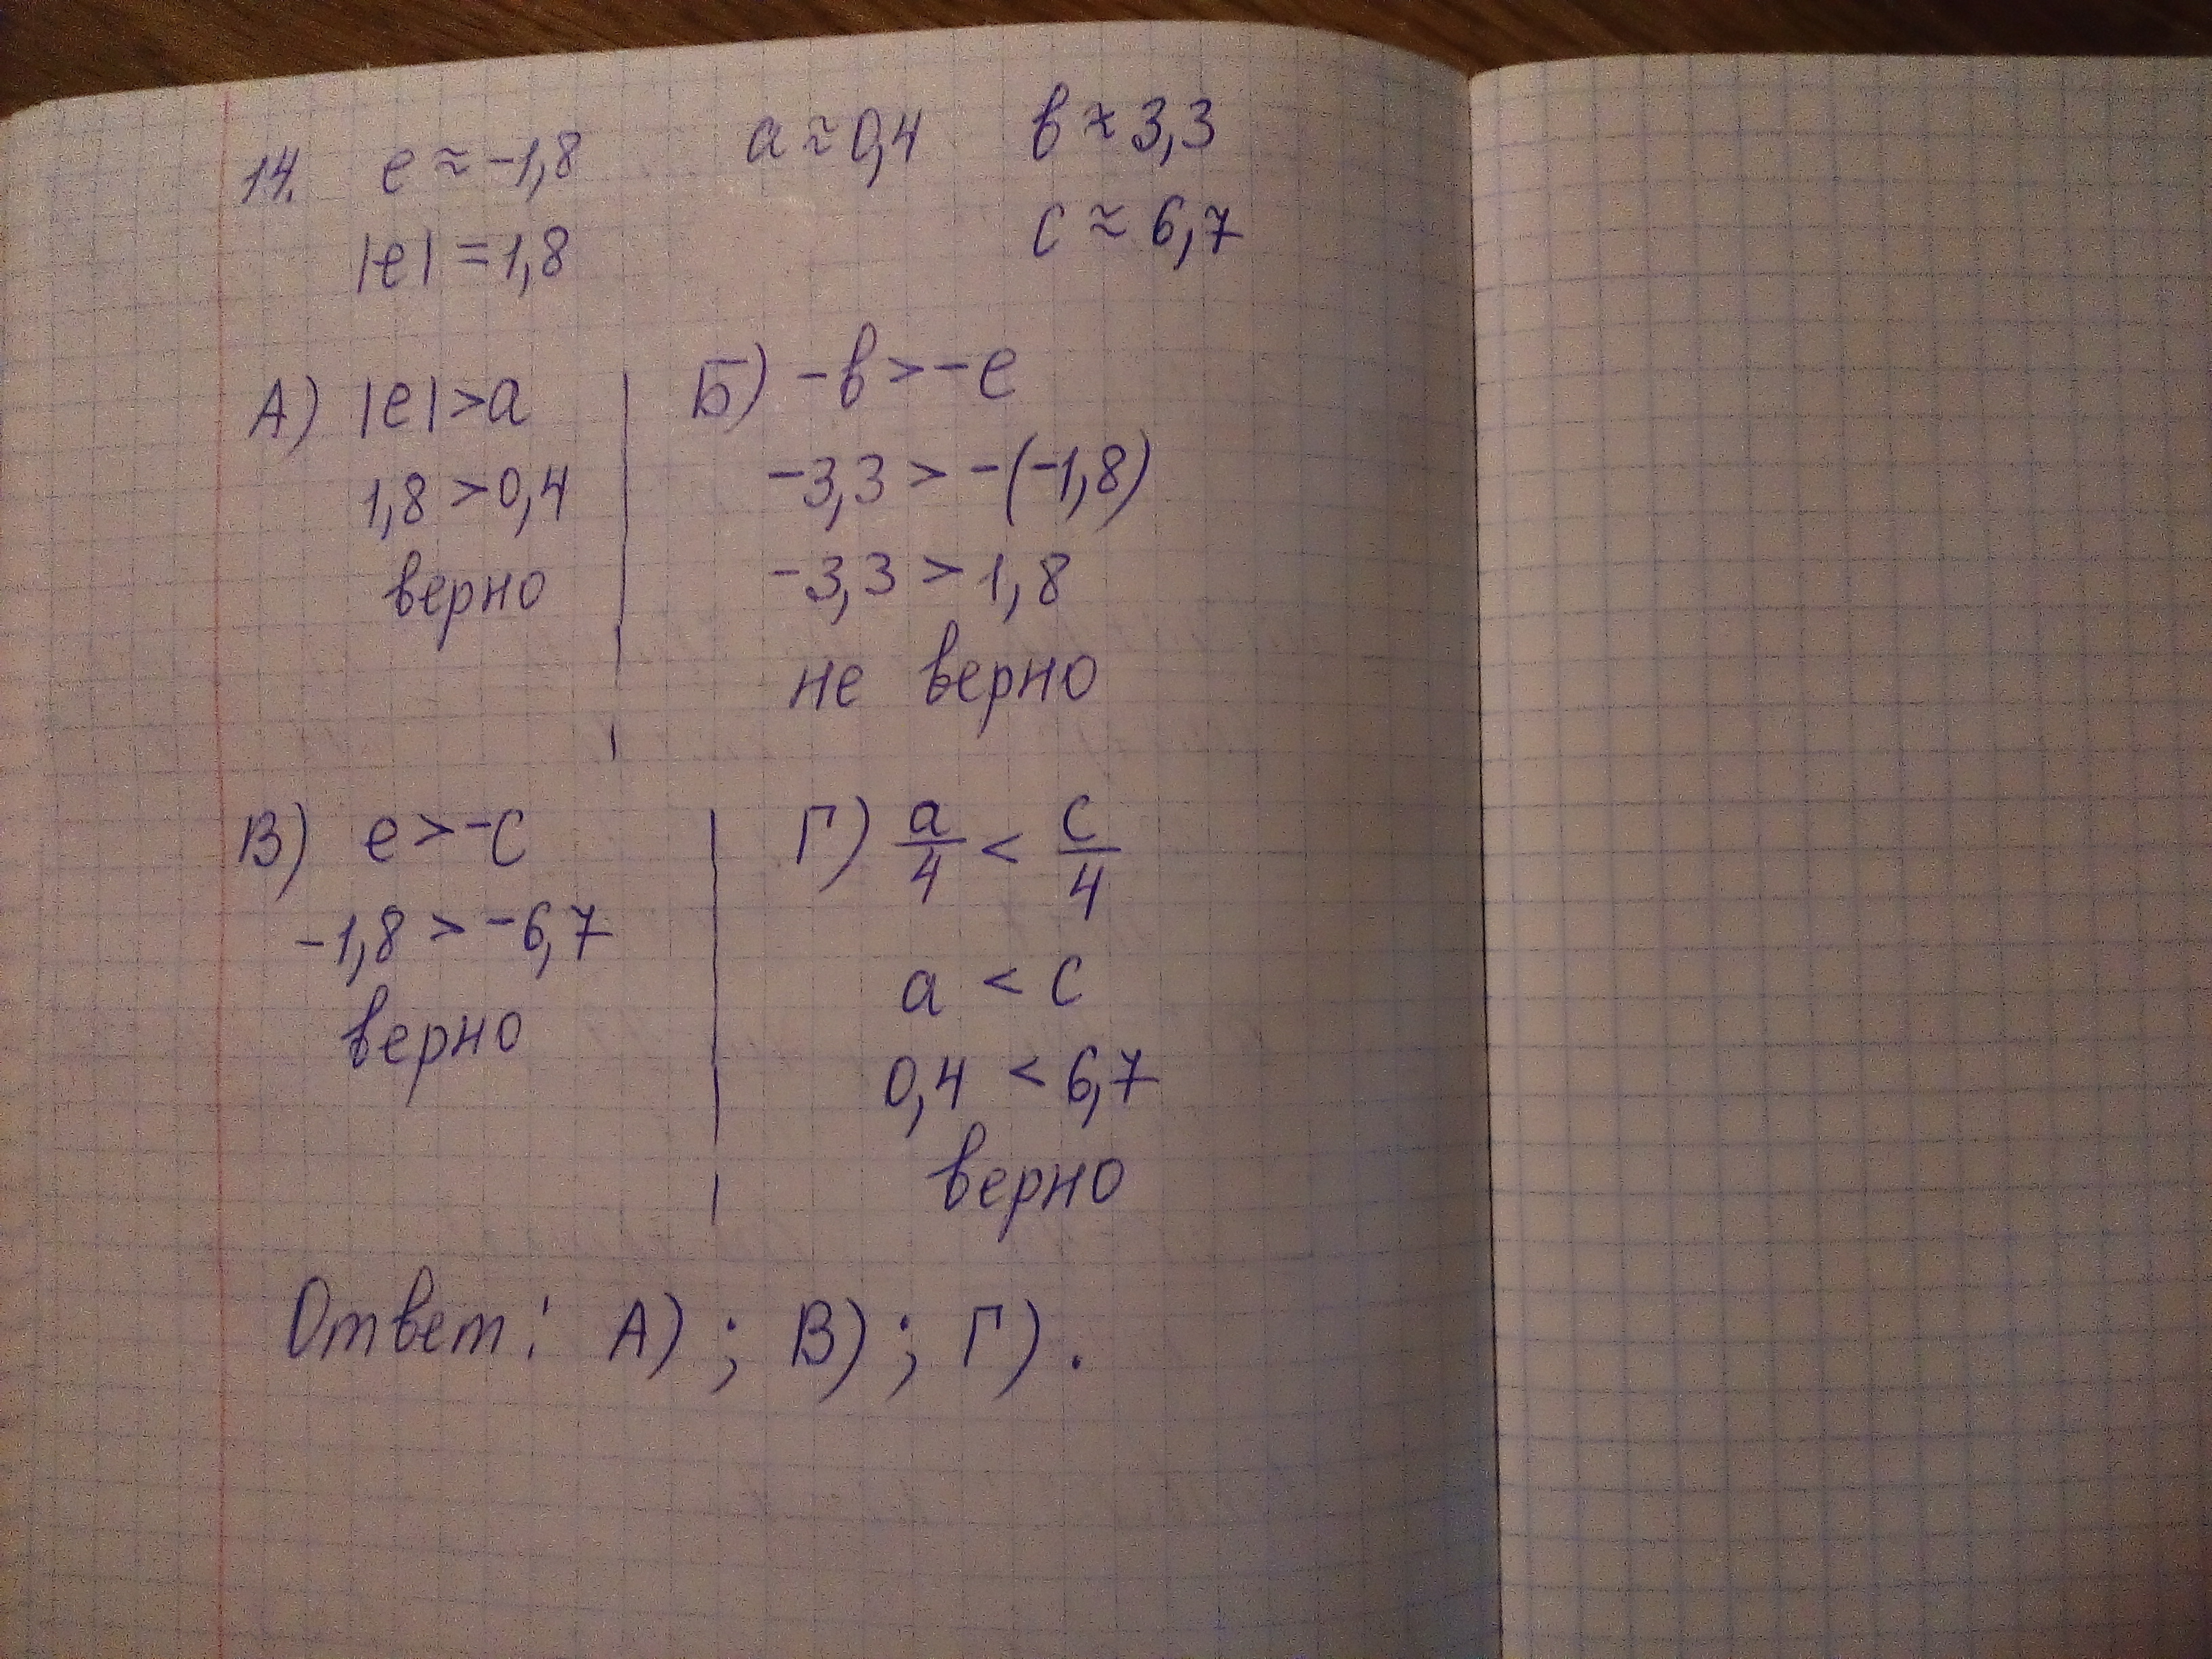 14. e ≈ -1,8 a ≈ 0,4 в ≈ 3,3
|e| = 1,8 c ≈ 6,7
А) |e| > a
1,8 > 0,4
верно
Б) -в > -e
-3,3 > -(-1,8)
-3,3 > 1,8
не верно
В) e > -c
-1,8 > -6,7
верно
Г) a/4 < c/4
a < c
0,4 < 6,7
верно
Ответ: А) ; В) ; Г) .